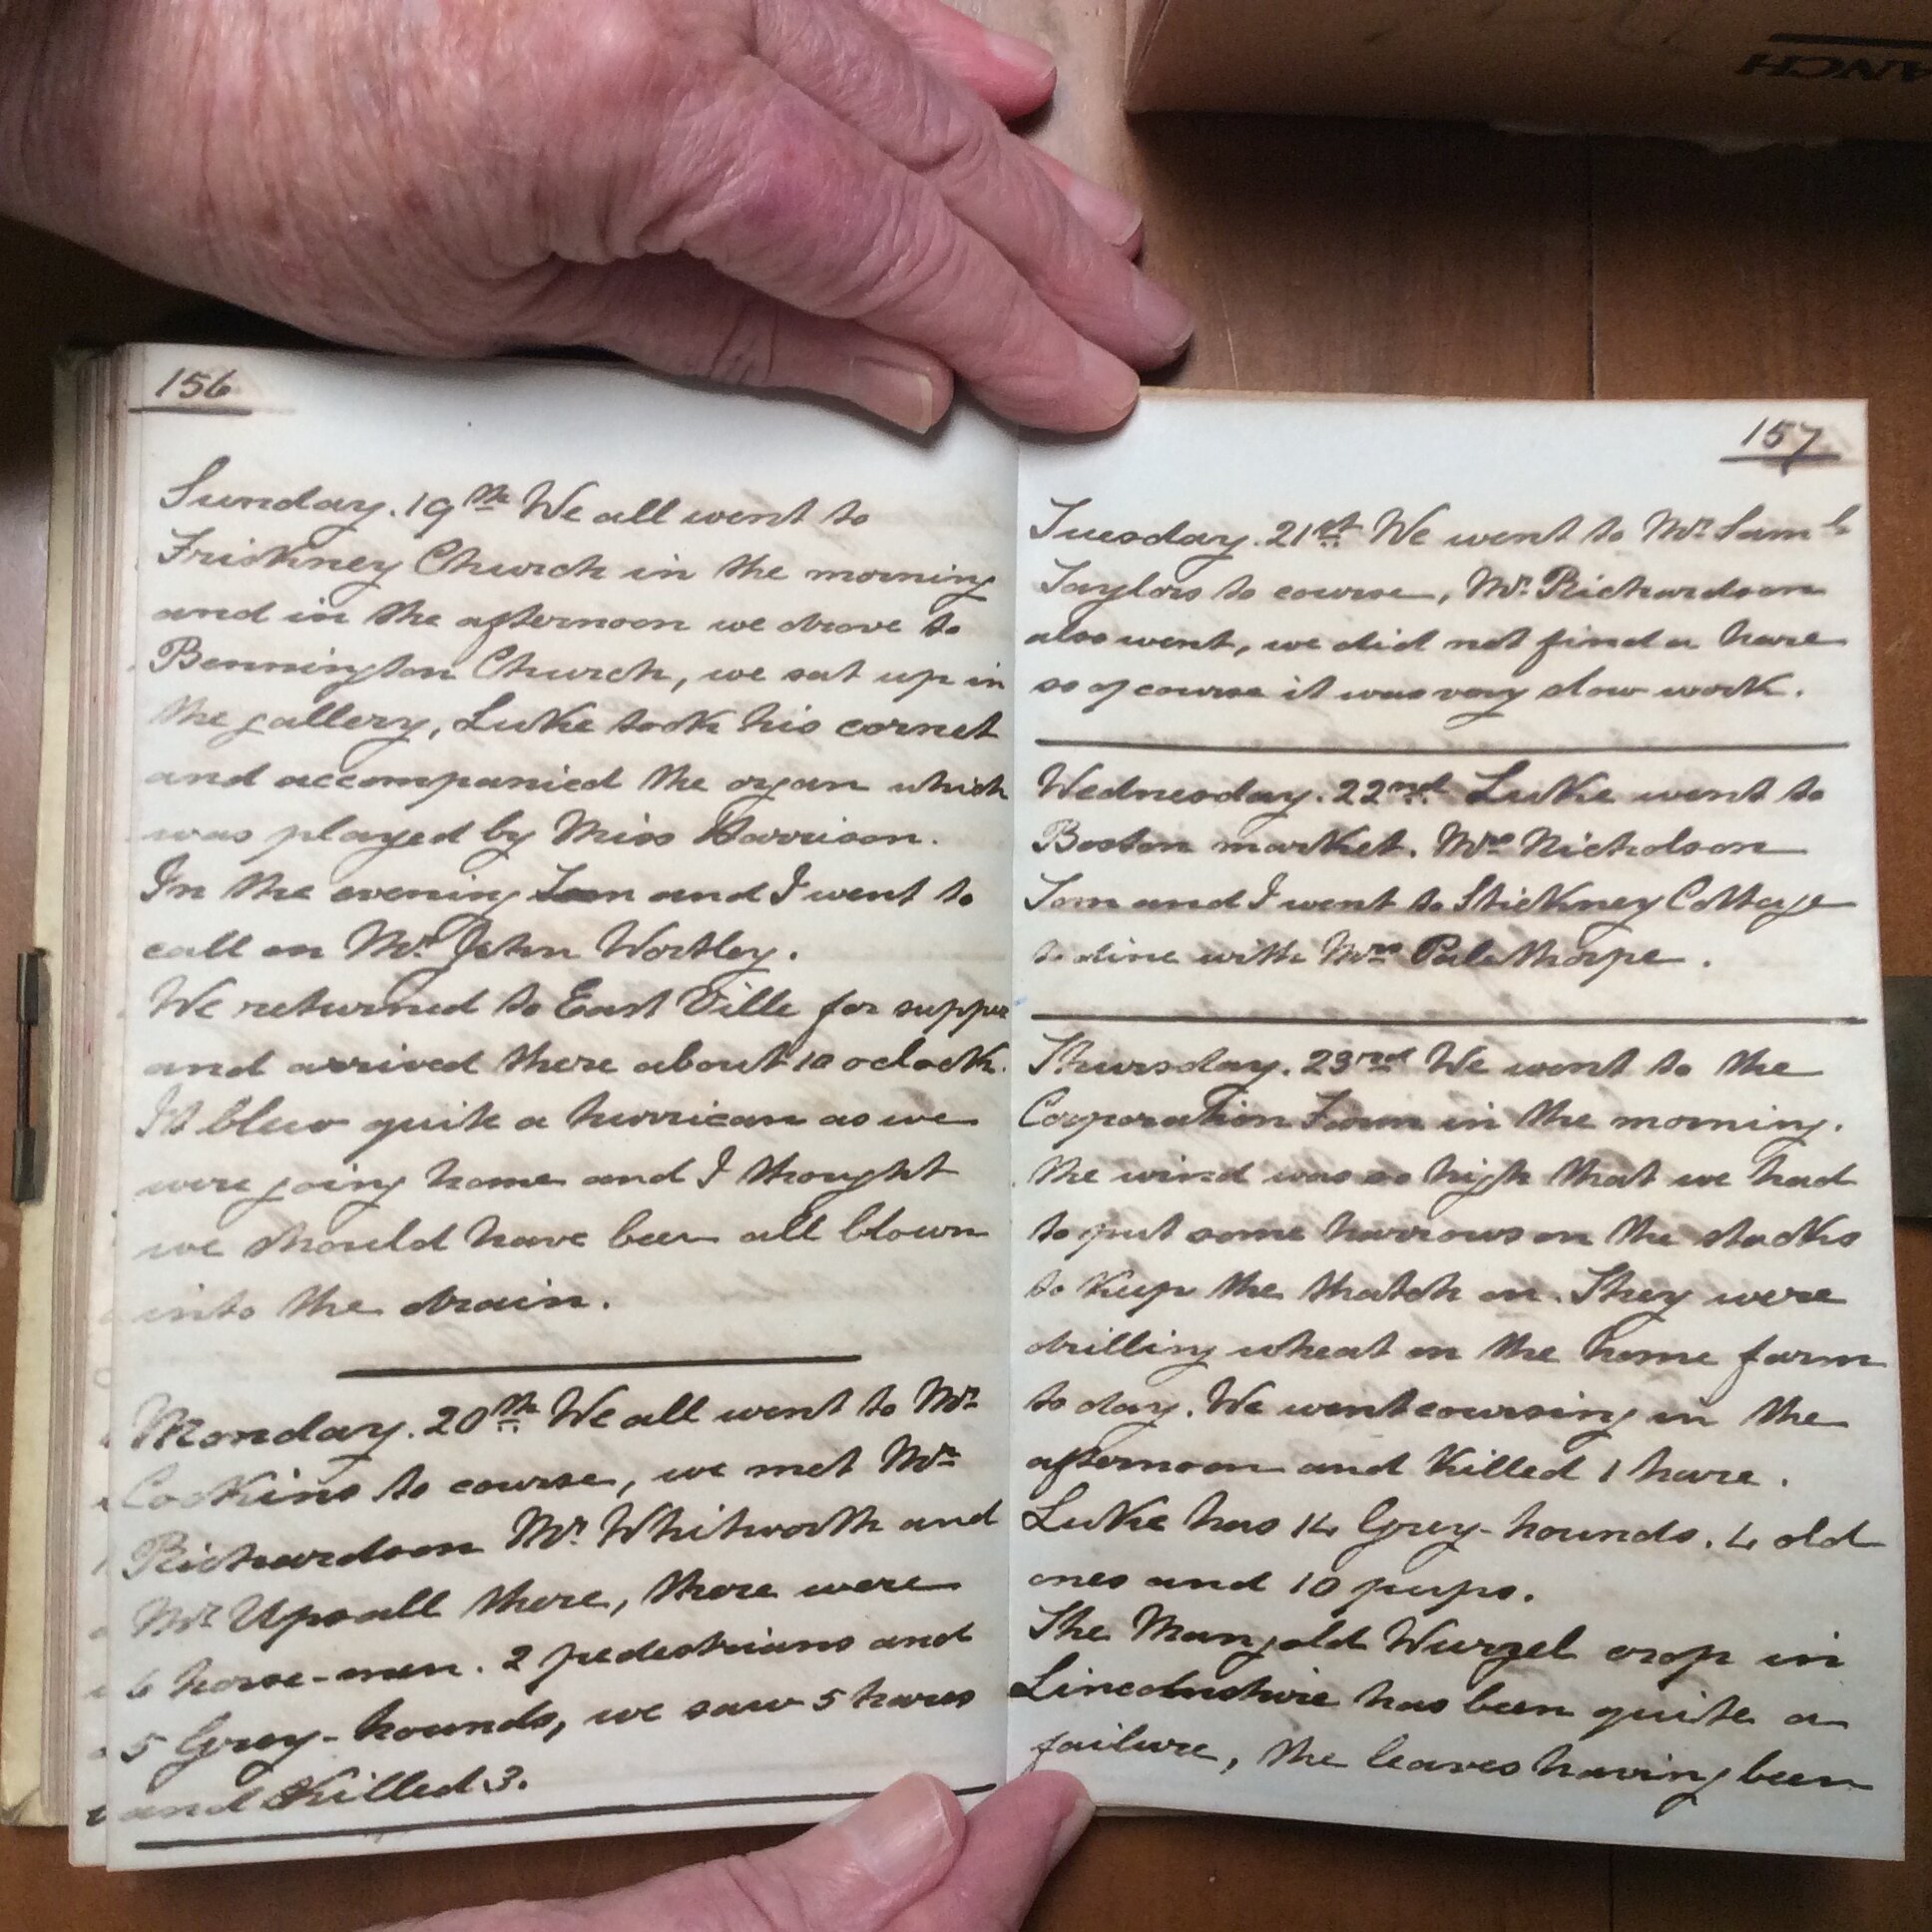 156
Sunday. 19th We all went to
Friskney Church in the morning
and in the afternoon we drove to
Bennington Church, we sat up in
the gallery, Luke took his cornet
and accompanied the organ which
was played by Miss Harrison.
In the evening Tom and I went to
call on Mr. John Wortley.
We returned to East Ville for supper
and arrived there about 10 oclock.
It blew quite a hurrican as we
were going home and I thought
we should have been all blown
into the drain.
Monday. 20th We all went to Mr.
Cockins to course, we met Mr.
Richardson Mr. Whitworth and
Mr. Upsall there, there were
6 horse-men. 2 pedestrians and
5 Grey-hounds, we saw 5 hares
and Killed 3.
157
Tuesday. 21st We went to Mr. Saml.
Taylors to course, Mr. Richardson
also went, we did not find a hare
so of course it was very slow work.
Wednesday. 22nd Luke went to
Boston market. Mrs Nicholson
Tom and I went to Stickney Cottage
to dine with Mrs Palethorpe.
Thursday. 23rd We went to the
Corporation Farm in the morning.
the wind was so high that we had
to put some harrows on the stacks
to Keep the thatch on. They were
drilling wheat on the home farm
to day. We went coursing in the
afternoon and Killed 1 hare.
Luke has 14 Grey-hounds. 4 old
ones and 10 pups.
The Mangold Wurzel crop in
Lincolnshire has been quite a
failure, the leaves having been
ANCH